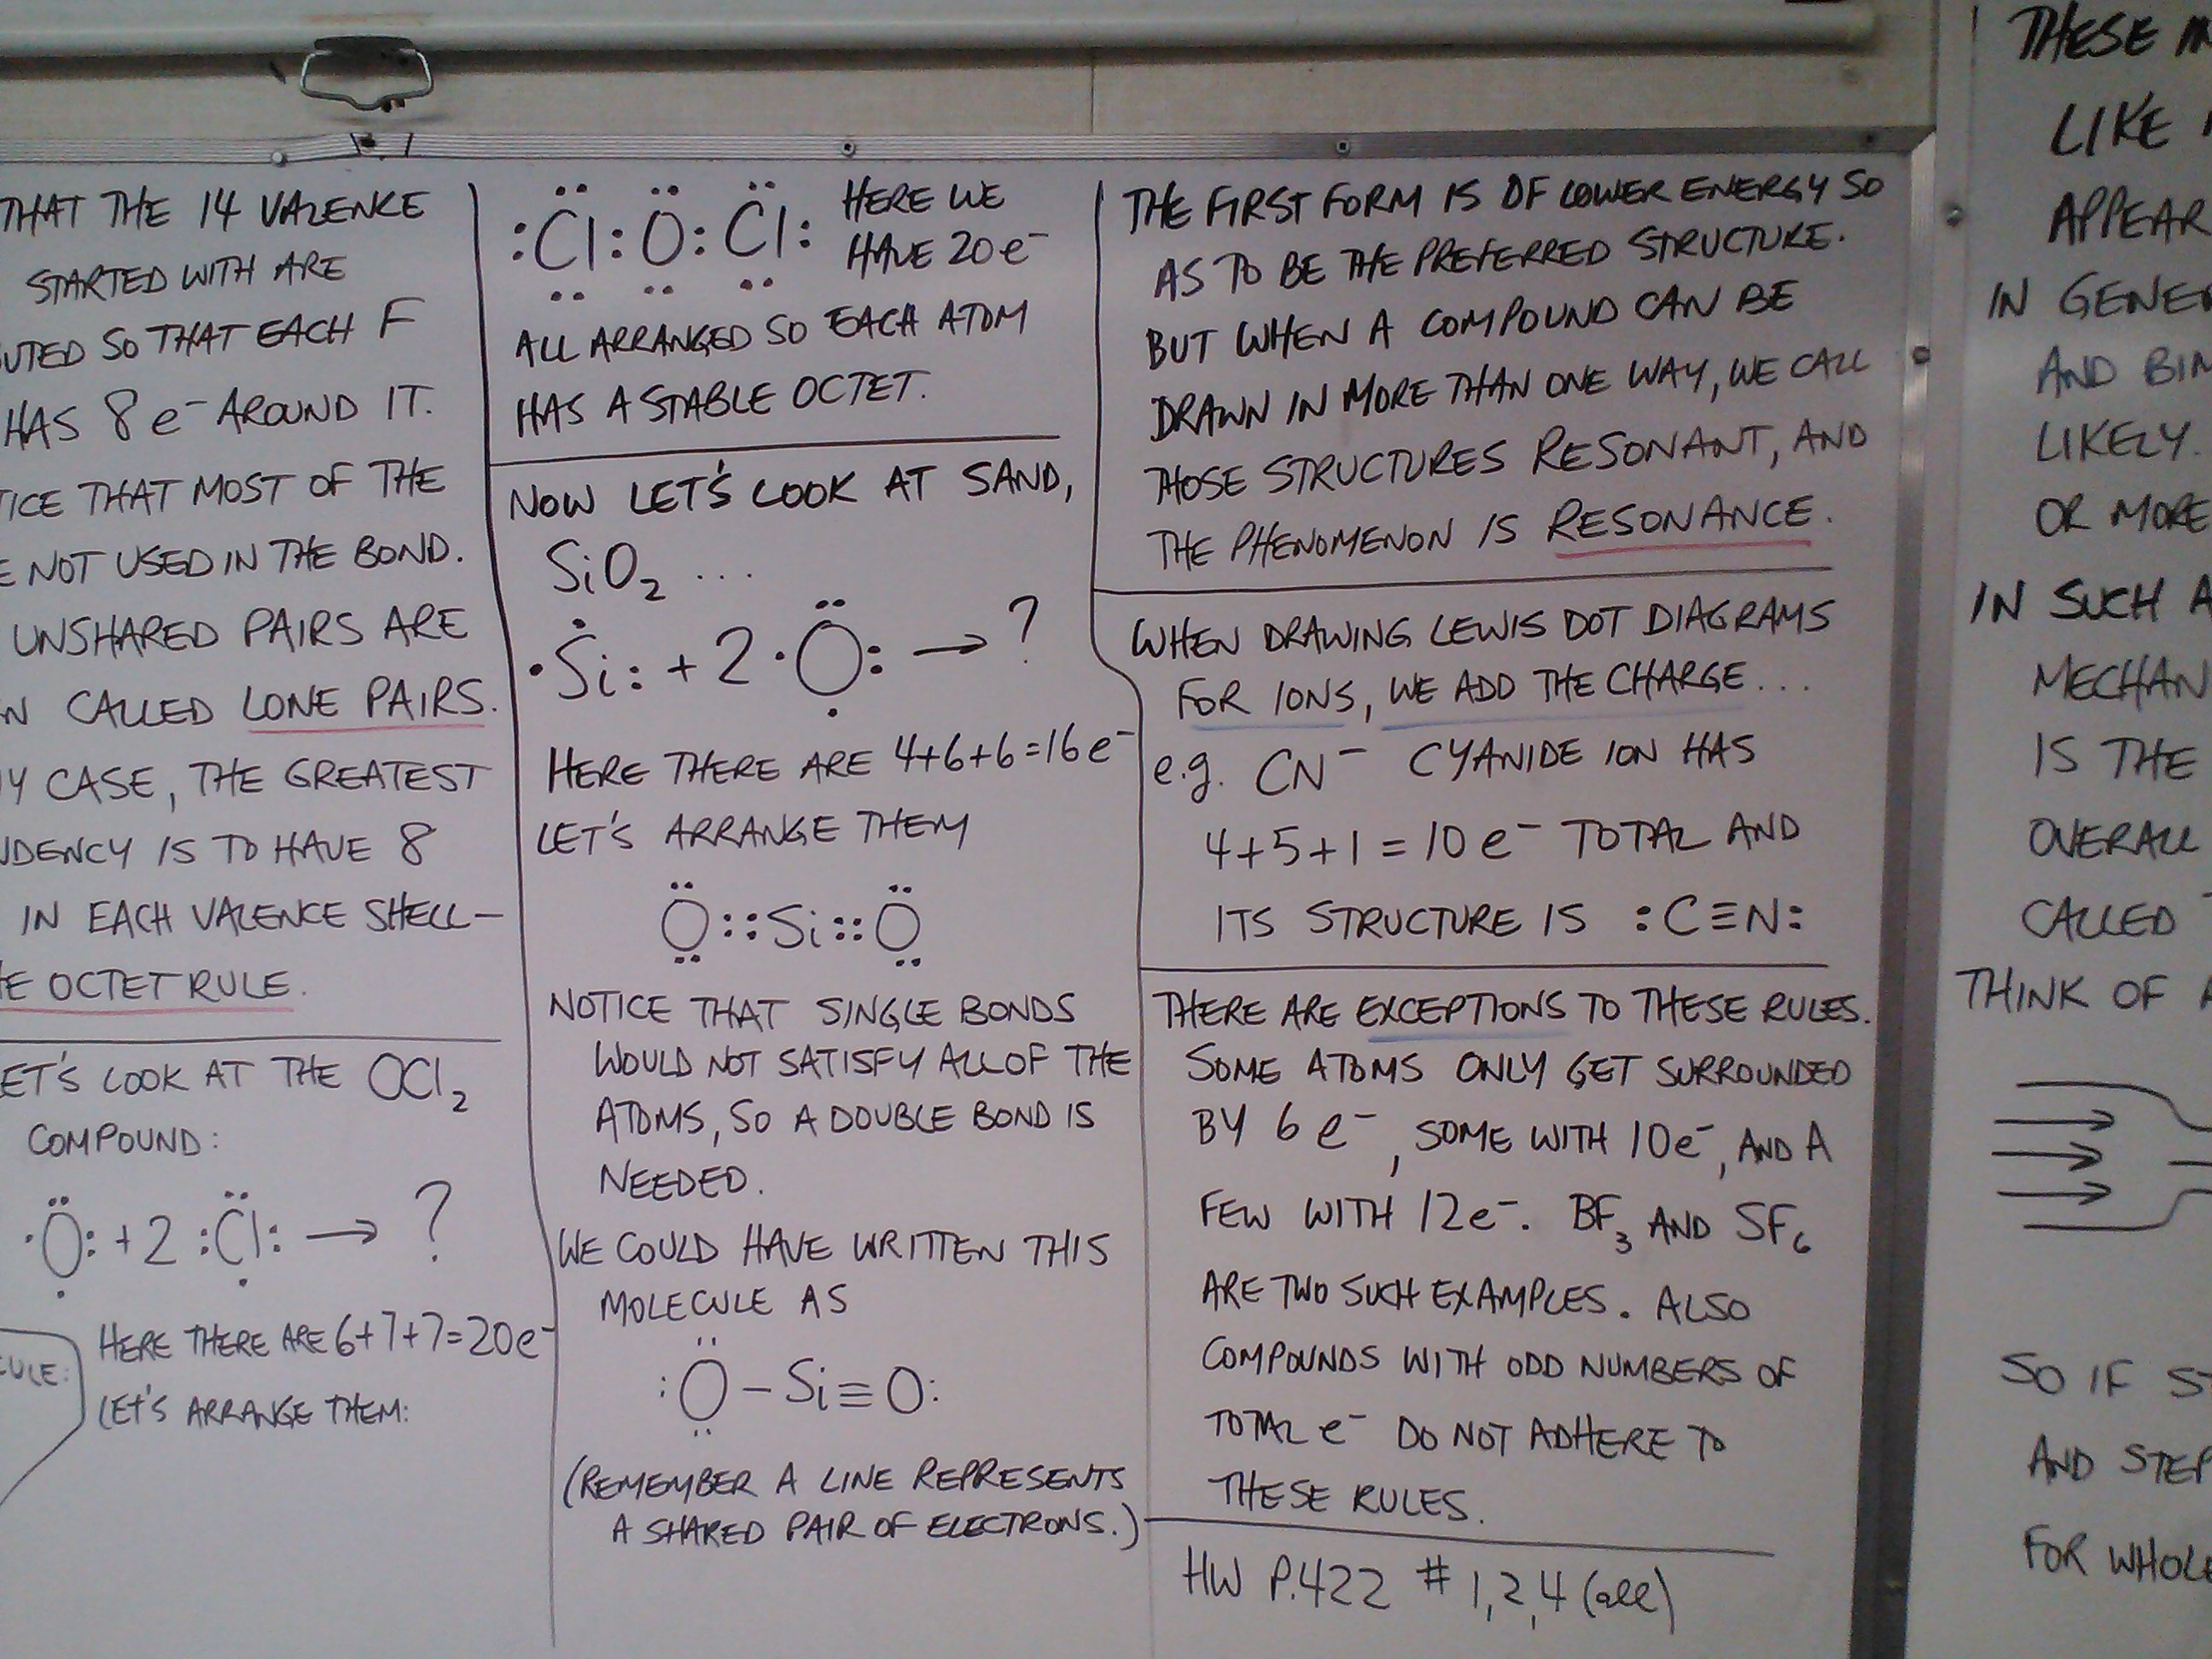 THAT THE 14 VALENCE
STARTED WITH ARE
UTED SO THAT EACH F
HAS 8 e⁻ AROUND IT.
TICE THAT MOST OF THE
E NOT USED IN THE BOND.
UNSHARED PAIRS ARE
N CALLED LONE PAIRS.
Y CASE, THE GREATEST
NDENCY IS TO HAVE 8
IN EACH VALENCE SHELL—
E OCTET RULE.
ET'S LOOK AT THE OCl₂
COMPOUND:
·Ö: + 2 :Cl: → ?
HERE THERE ARE 6+7+7=20e⁻
CULE:
LET'S ARRANGE THEM:
:Cl:O:Cl: HERE WE
HAVE 20e⁻
ALL ARRANGED SO EACH ATOM
HAS A STABLE OCTET.
NOW LET'S LOOK AT SAND,
SiO₂ ...
·Si: + 2 ·O: → ?
HERE THERE ARE 4+6+6=16e⁻
LET'S ARRANGE THEM
O::Si::O
NOTICE THAT SINGLE BONDS
WOULD NOT SATISFY ALL OF THE
ATOMS, SO A DOUBLE BOND IS
NEEDED.
WE COULD HAVE WRITTEN THIS
MOLECULE AS
:O–Si≡O:
(REMEMBER A LINE REPRESENTS
A SHARED PAIR OF ELECTRONS.)
THE FIRST FORM IS OF LOWER ENERGY SO
AS TO BE THE PREFERRED STRUCTURE.
BUT WHEN A COMPOUND CAN BE
DRAWN IN MORE THAN ONE WAY, WE CALL
THOSE STRUCTURES RESONANT, AND
THE PHENOMENON IS RESONANCE.
WHEN DRAWING LEWIS DOT DIAGRAMS
FOR IONS, WE ADD THE CHARGE...
e.g. CN⁻ CYANIDE ION HAS
4+5+1=10e⁻ TOTAL AND
ITS STRUCTURE IS :C≡N:
THERE ARE EXCEPTIONS TO THESE RULES.
SOME ATOMS ONLY GET SURROUNDED
BY 6e⁻, SOME WITH 10e⁻, AND A
FEW WITH 12e⁻. BF₃ AND SF₆
ARE TWO SUCH EXAMPLES. ALSO
COMPOUNDS WITH ODD NUMBERS OF
TOTAL e⁻ DO NOT ADHERE TO
THESE RULES.
HW P.422 # 1,2,4 (all)
THESE
LIKE
APPEAR
IN GENE
AND BIM
LIKELY.
OR MORE
IN SUCH A
MECHAN
IS THE
OVERALL
CALLED
THINK OF A
SO IF ST
AND STEP
FOR WHOLE